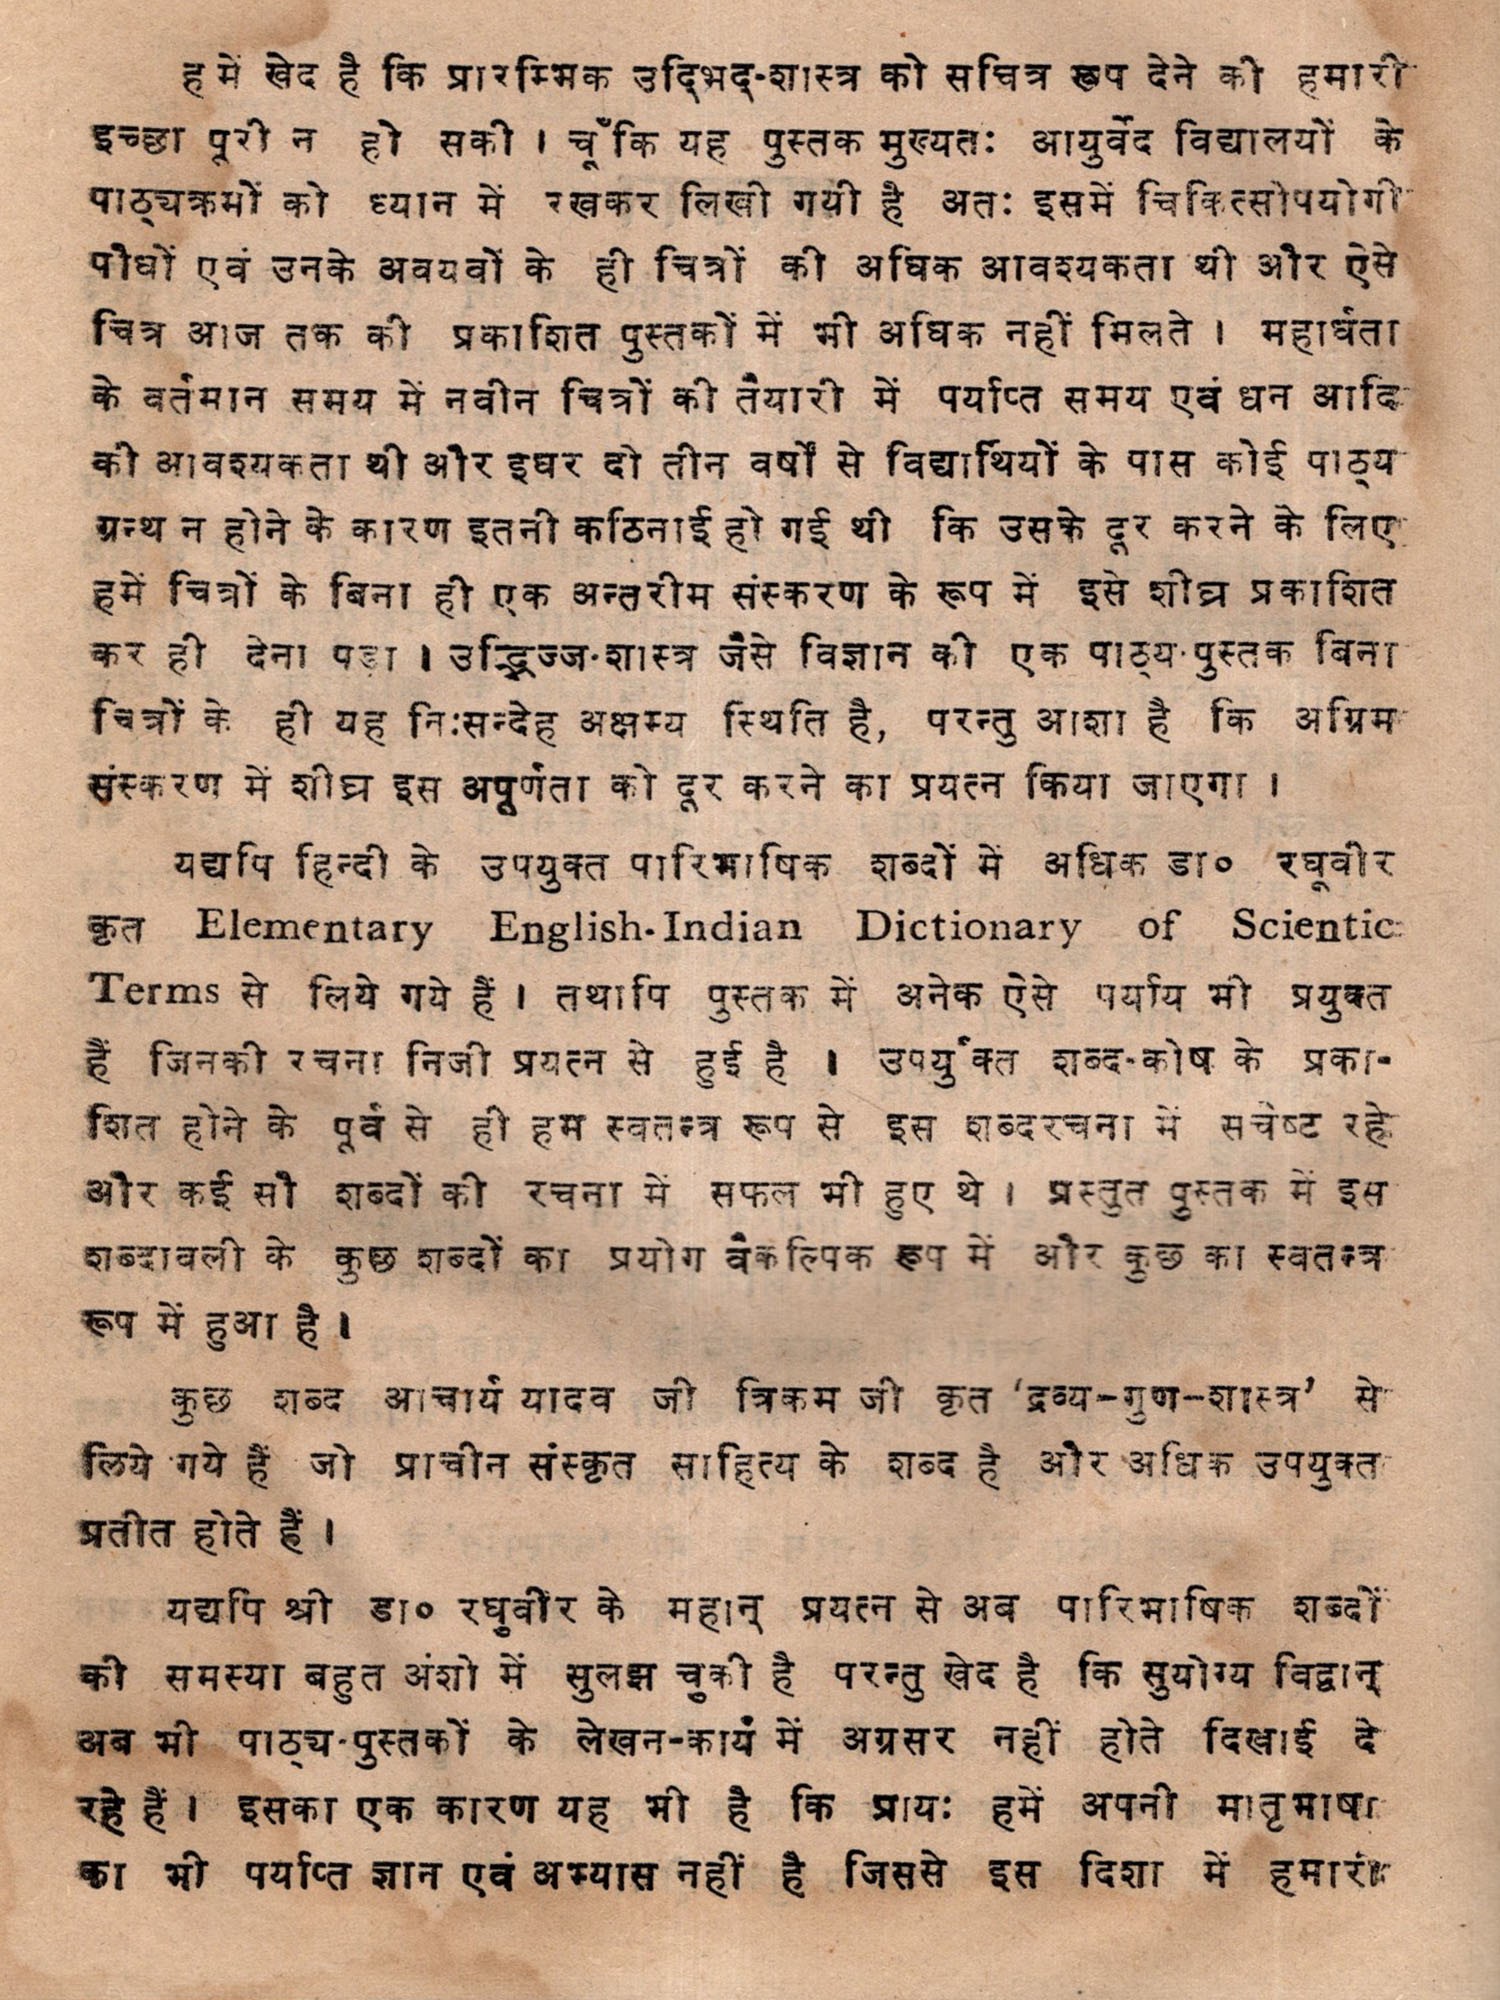 हमें खेद है कि प्रारम्भिक उद्भिद्-शास्त्र को सचित्र रूप देने की हमारी
इच्छा पूरी न हो सकी । चूँकि यह पुस्तक मुख्यतः आयुर्वेद विद्यालयों के
पाठ्यक्रमों को ध्यान में रखकर लिखी गयी है अतः इसमें चिकित्सोपयोगी
पौधों एवं उनके अवयवों के ही चित्रों की अधिक आवश्यकता थी और ऐसे
चित्र आज तक की प्रकाशित पुस्तकों में भी अधिक नहीं मिलते । महार्घता
के वर्तमान समय में नवीन चित्रों की तैयारी में पर्याप्त समय एवं धन आदि
की आवश्यकता थी और इधर दो तीन वर्षों से विद्यार्थियों के पास कोई पाठ्य
ग्रन्थ न होने के कारण इतनी कठिनाई हो गई थी कि उसके दूर करने के लिए
हमें चित्रों के बिना ही एक अन्तरीम संस्करण के रूप में इसे शीघ्र प्रकाशित
कर ही देना पड़ा । उद्भिज्ज-शास्त्र जैसे विज्ञान की एक पाठ्य-पुस्तक बिना
चित्रों के ही यह निःसन्देह अक्षम्य स्थिति है, परन्तु आशा है कि अग्रिम
संस्करण में शीघ्र इस अपूर्णता को दूर करने का प्रयत्न किया जाएगा ।
यद्यपि हिन्दी के उपयुक्त पारिभाषिक शब्दों में अधिक डा० रघूवीर
कृत Elementary English-Indian Dictionary of Scientic
Terms से लिये गये हैं । तथापि पुस्तक में अनेक ऐसे पर्याय भी प्रयुक्त
हैं जिनकी रचना निजी प्रयत्न से हुई है । उपर्युक्त शब्द-कोष के प्रका-
शित होने के पूर्व से ही हम स्वतन्त्र रूप से इस शब्दरचना में सचेष्ट रहे
और कई सौ शब्दों की रचना में सफल भी हुए थे । प्रस्तुत पुस्तक में इस
शब्दावली के कुछ शब्दों का प्रयोग वैकल्पिक रूप में और कुछ का स्वतन्त्र
रूप में हुआ है ।
कुछ शब्द आचार्य यादव जी त्रिकम जी कृत ‘द्रव्य-गुण-शास्त्र’ से
लिये गये हैं जो प्राचीन संस्कृत साहित्य के शब्द है और अधिक उपयुक्त
प्रतीत होते हैं ।
यद्यपि श्री डा० रघुवीर के महान् प्रयत्न से अब पारिभाषिक शब्दों
की समस्या बहुत अंशो में सुलझ चुकी है परन्तु खेद है कि सुयोग्य विद्वान्
अब भी पाठ्य-पुस्तकों के लेखन-कार्य में अग्रसर नहीं होते दिखाई दे
रहे हैं । इसका एक कारण यह भी है कि प्रायः हमें अपनी मातृभाषा
का भी पर्याप्त ज्ञान एवं अभ्यास नहीं है जिससे इस दिशा में हमारी